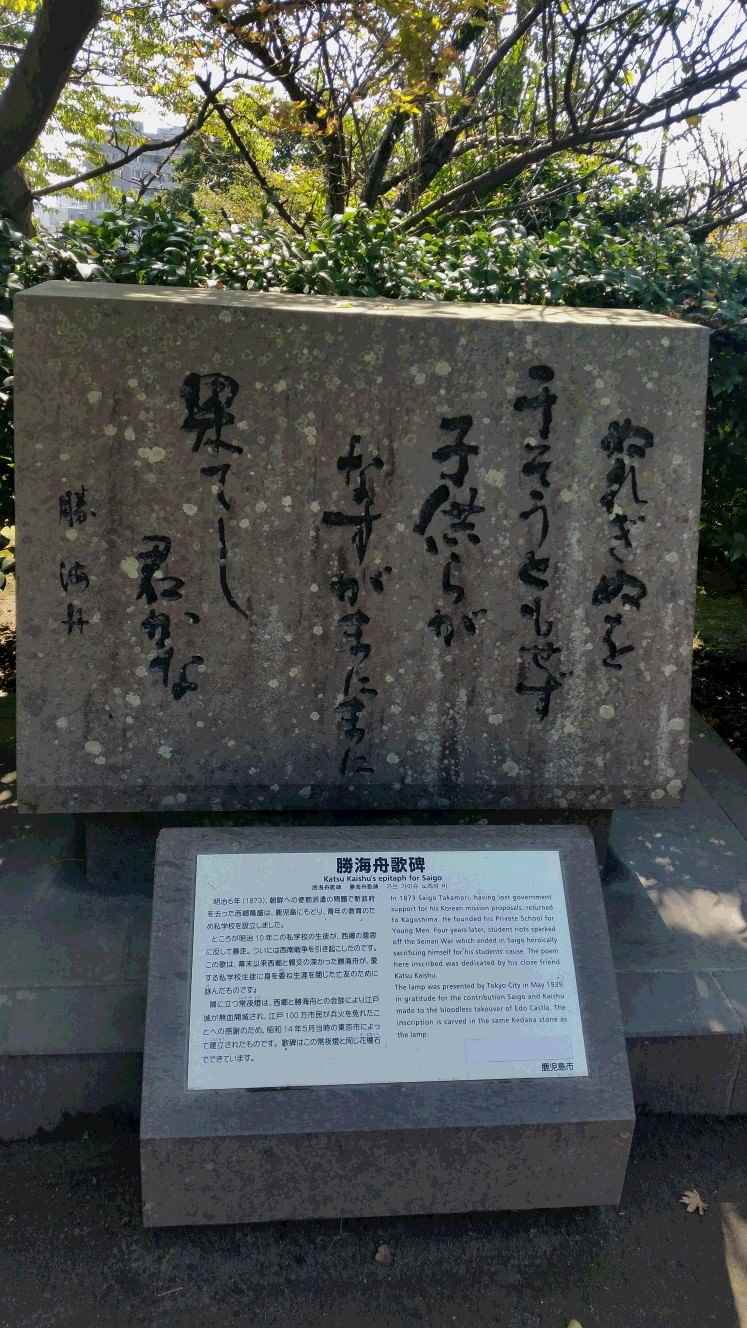 ぬれぎぬを
干そうともせず
子供らが
なすがまにまに
果てし
君かな
勝海舟
勝海舟歌碑
Katsu Kaishu's epitaph for Saigo
西乡海舟歌碑 勝海舟歌碑
明治6年(1873)、朝鮮への使節派遣の問題で新政府
を去った西郷隆盛は、鹿児島にもどり、青年の教育のた
め私学校を設立しました。
ところが明治10年この私学校の生徒が、西郷の意思
に反して暴走。ついには西南戦争を引き起こしたのです。
この歌は、幕末以来西郷と親交の深かった勝海舟が、愛
する私学校生徒に身を委ね生涯を閉じた亡友のために
詠んだものです。
隣に立つ常夜燈は、西郷と勝海舟との会談により江戸
城が無血開城され、江戸100万市民が兵火を免れたこ
とへの感謝のため、昭和14年5月当時の東京市によっ
て建立されたものです。歌碑はこの常夜燈と同じ花棚石
でできています。
In 1873 Saigo Takamori, having lost government
support for his Korean mission proposals, returned
to Kagoshima. He founded his Private School for
Young Men. Four years later, student riots sparked
off the Seinan War which ended in Saigo heroically
sacrificing himself for his students' cause. The poem
here inscribed was dedicated by his close friend
Katsu Kaishu.
The lamp was presented by Tokyo City in May 1939
in gratitude for the contribution Saigo and Kaishu
made to the bloodless takeover of Edo Castle. The
inscription is carved in the same Kedana stone as
the lamp.
鹿児島市